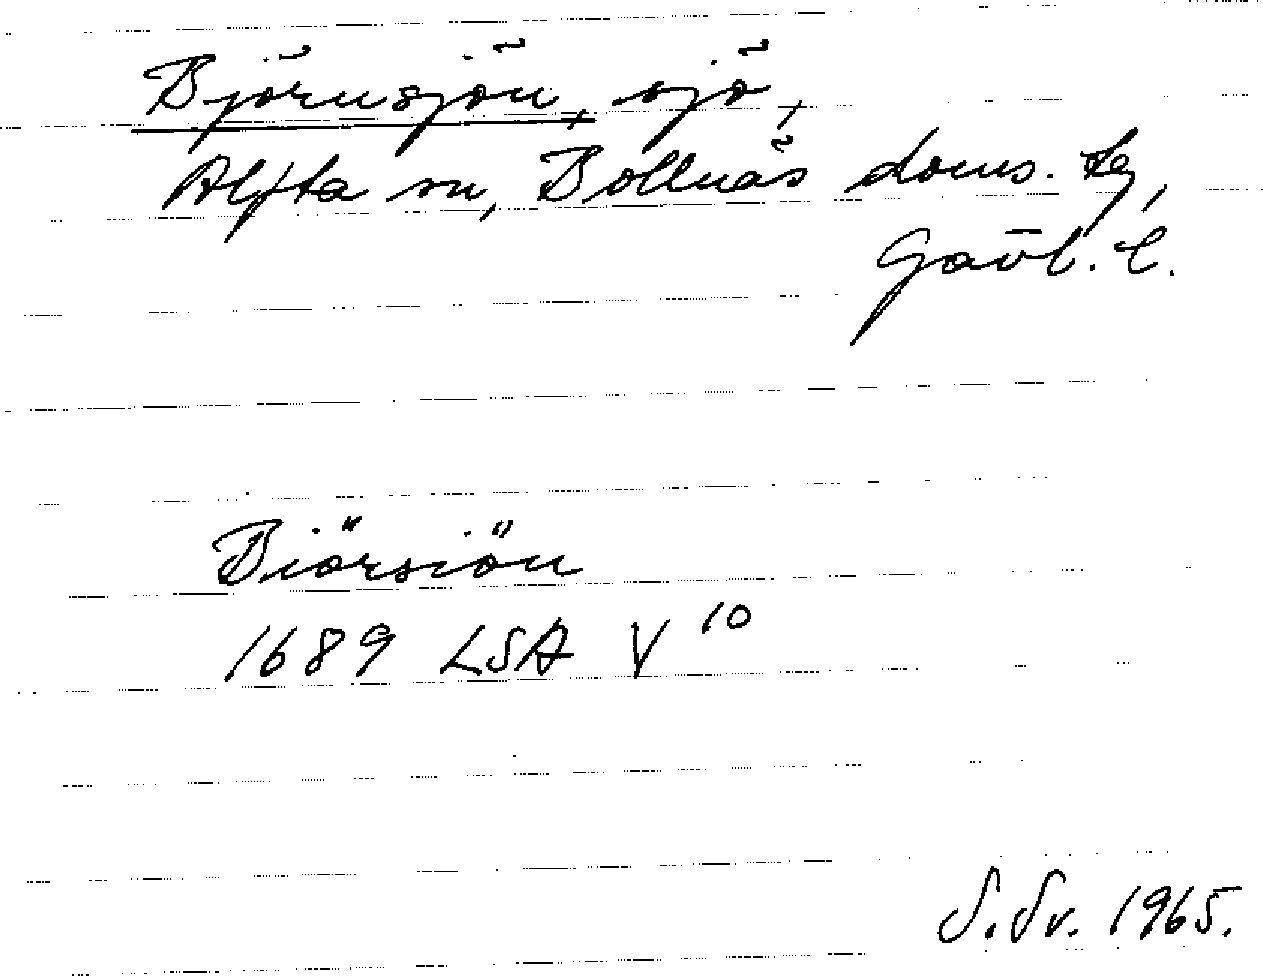 Björnsjön, sjö,
Alfta sn, Bollnäs doms. tg,
Gävl. l.
Biörsiön
1689 LSA V 10
S. Sv. 1965.